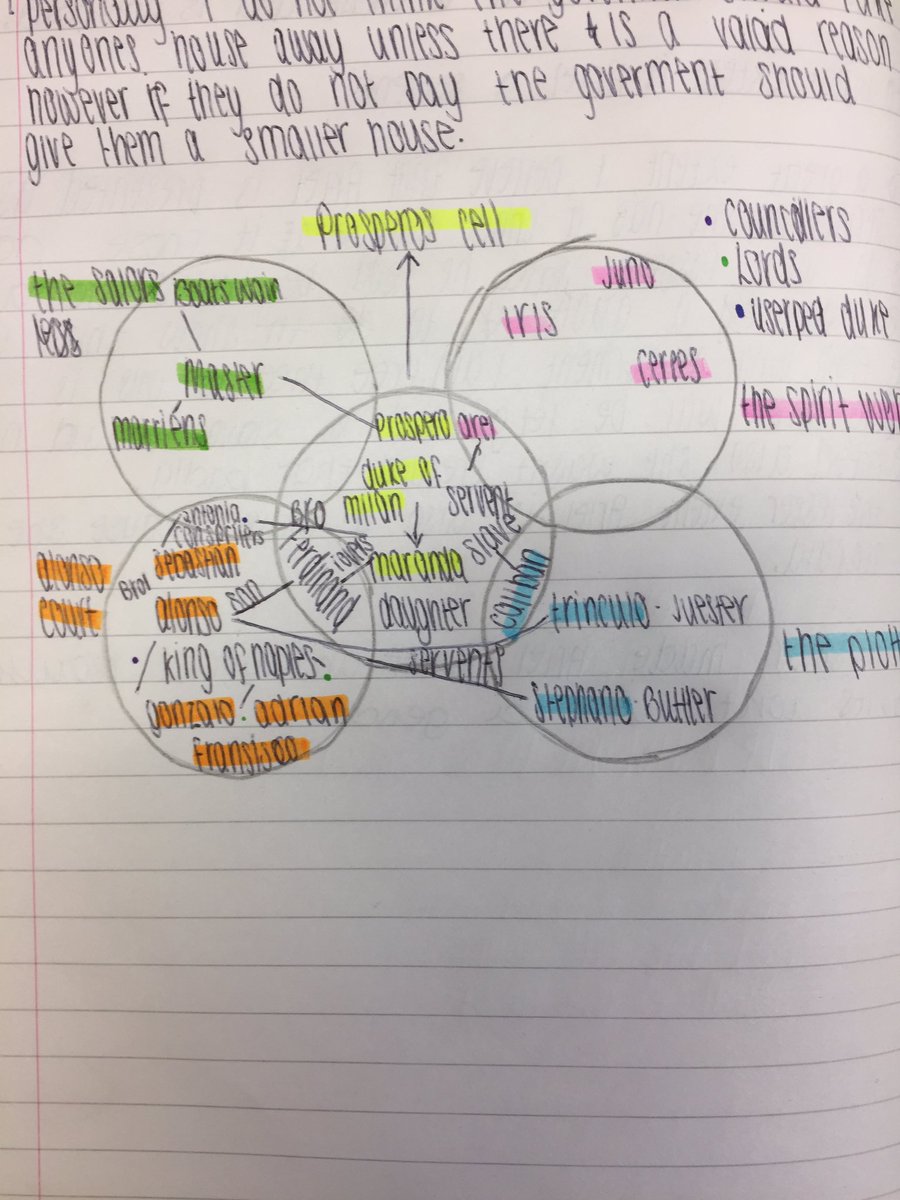 personally I do not think the government should take
anyones house away unless there is a valid reason
however if they do not pay the goverment should
give them a smaller house.
Prosperos cell
• councillers
• Lords
• userped duke
the sailors
Boatswain
Master
marriens
Juno
Iris
Cerres
the spirit
prospero ariel
duke of
milan
servent
slave
maranda
daughter
lovers
Ferdinand
Bro
antonio.
conspiriters
sebastian
Bro
alonso
court
alonso son
king of naples
gonzalo adrian
fransisco
caliban
trinculo - Juester
servents
stephano - Butler
the plot